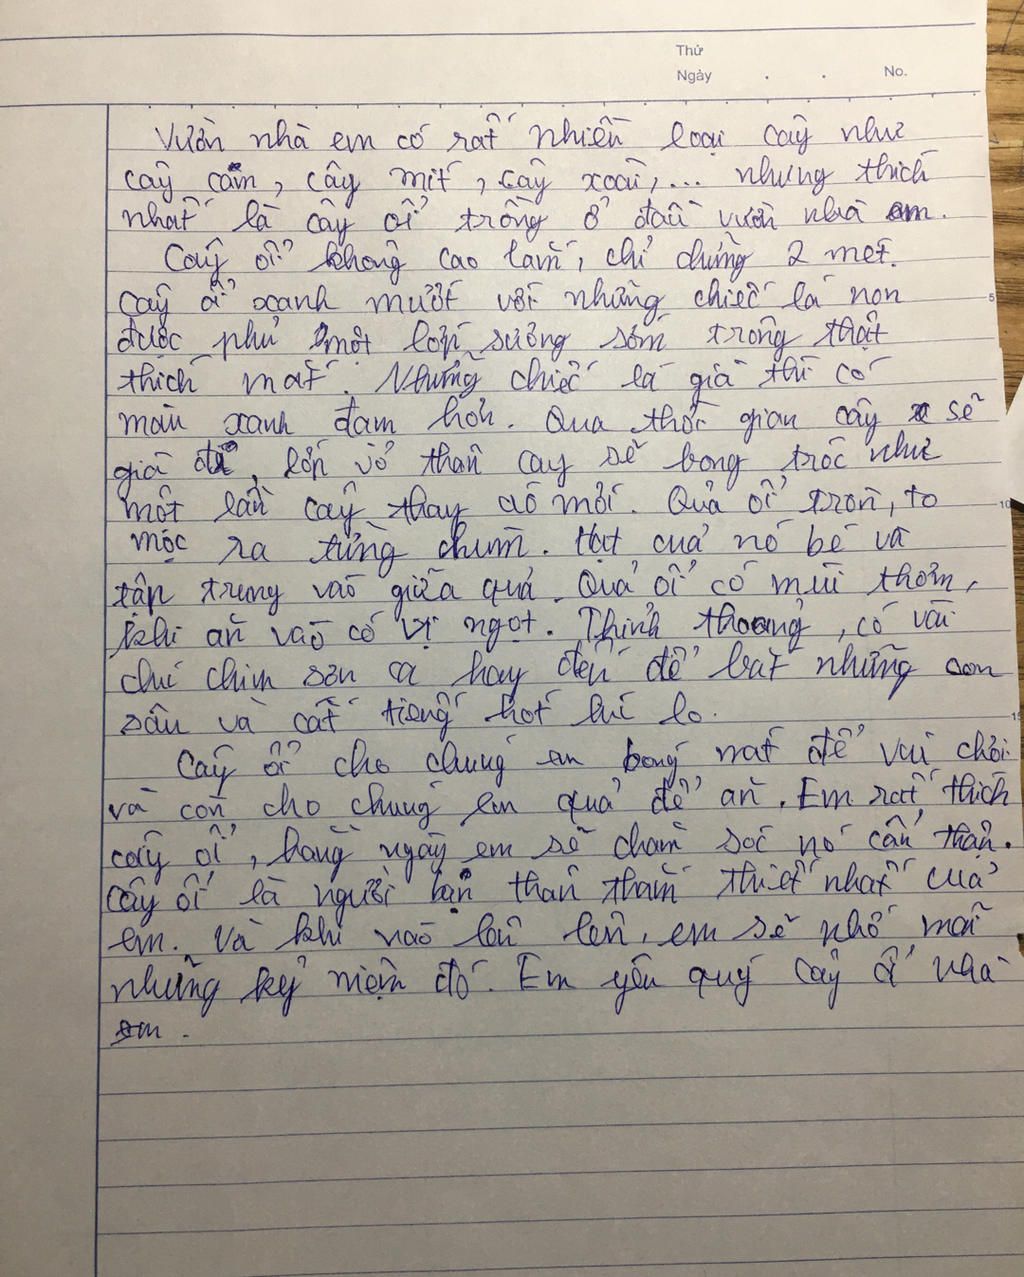 Thứ
Ngày . . No.
Vườn nhà em có rất nhiều loại cây như
cây cam, cây mít, cây xoài,... nhưng thích
nhất là cây ổi trồng ở đầu vườn nhà em.
Cây ổi không cao lắm, chỉ chừng 2 mét.
Cây ổi xanh mướt với những chiếc lá non
được phủ một lớp sương sớm trông thật
thích mắt. Những chiếc lá già thì có
màu xanh đậm hơn. Qua thời gian cây sẽ
già đi, lớp vỏ thân cây sẽ bong tróc như
một lần cây thay áo mới. Quả ổi tròn, to
mọc ra từng chùm. Hạt của nó bé và
tập trung vào giữa quả. Quả ổi có mùi thơm,
khi ăn vào có vị ngọt. Thỉnh thoảng, có vài
chú chim sơn ca hay đến để bắt những con
sâu và cất tiếng hót líu lo.
Cây ổi cho chúng em bóng mát để vui chơi
và còn cho chúng em quả để ăn. Em rất thích
cây ổi, hằng ngày em sẽ chăm sóc nó cẩn thận.
Cây ổi là người bạn thân thắm thiết nhất của
em. Và khi nào lớn lên, em sẽ nhớ mãi
những kỷ niệm đó. Em yêu quý cây ổi nhà
em.
5
10
15